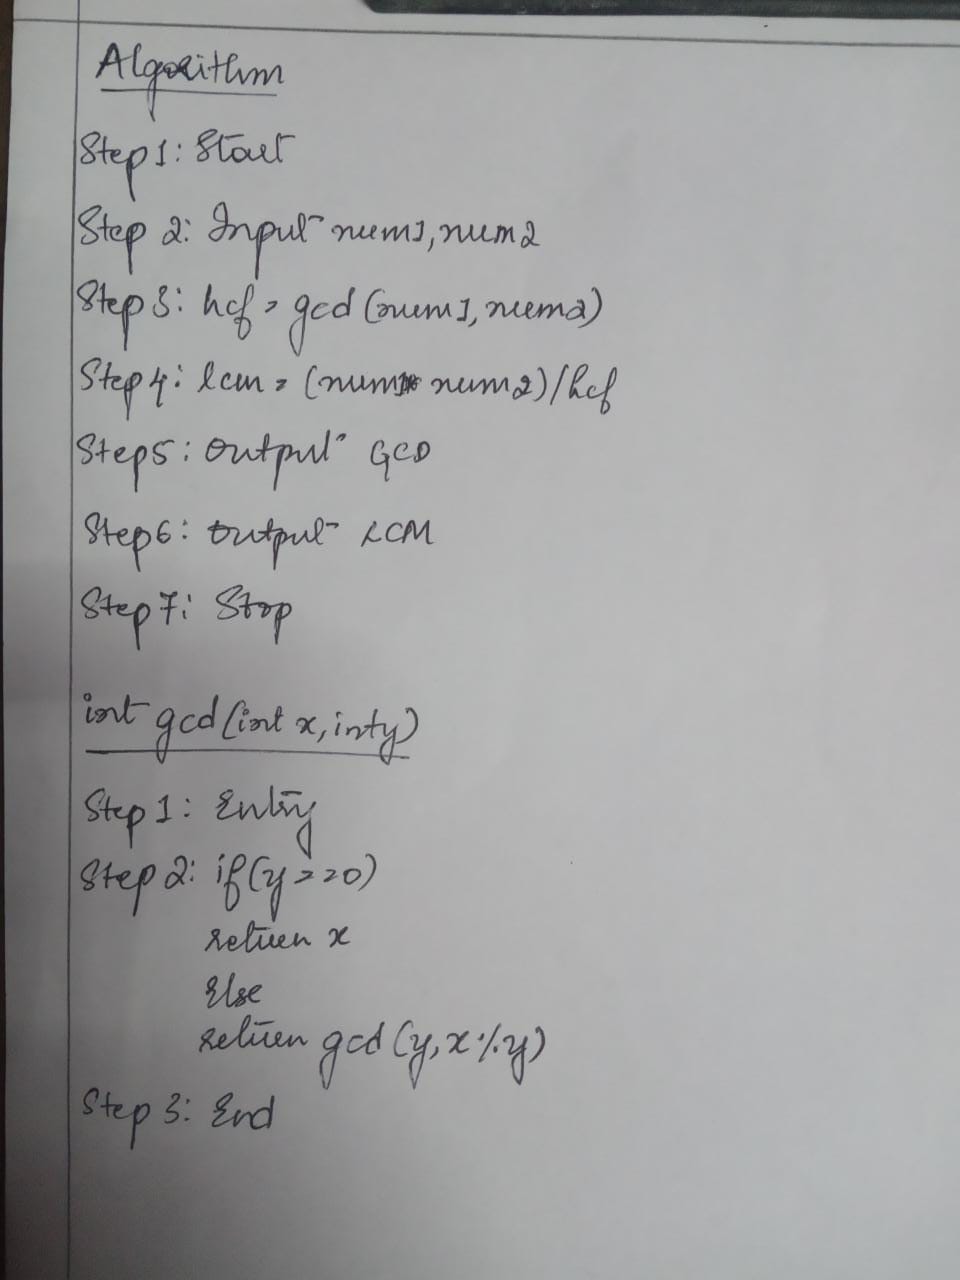 Algorithm
Step 1: Start
Step 2: Input num1, num2
Step 3: hcf = gcd (num1, num2)
Step 4: lcm = (num1* num2)/hcf
Step5: Output GCD
Step6: Output LCM
Step 7: Stop
int gcd (int x, int y)
Step 1: Entry
Step 2: if (y==0)
return x
Else
return gcd (y, x % y)
Step 3: End